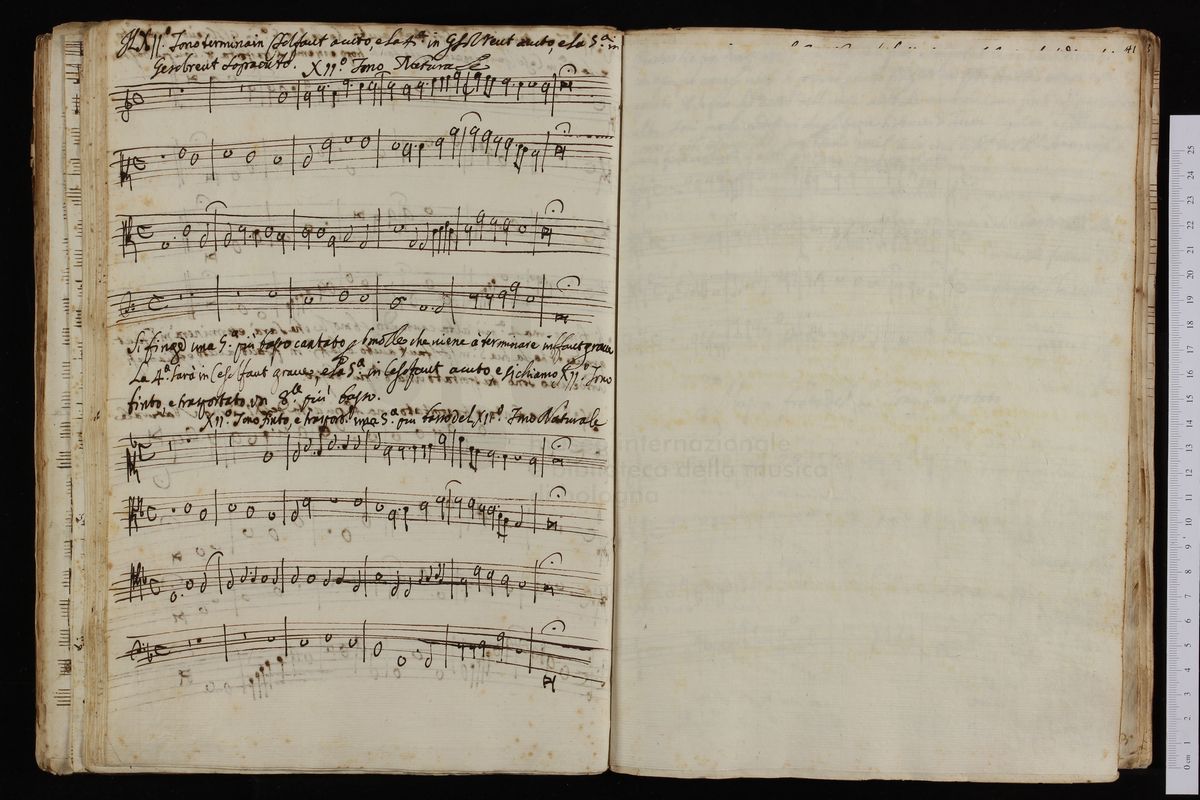 Il XII.º Tono termina in Csolfaut acuto, e la 4.ª in Gesolreut acuto, e la 5.ª in
Gesolreut sopracuto. XII.º Tono Naturale
41
Si finge una 5.ª più basso cantato p bmolle che viene a terminare in ffaut grave
La 4.ª sarà in Cesolfaut grave, e la 5.ª in Cesolfaut acuto e si chiama XII.º Tono
finto, e trasportato un 8.ª più basso.
XII.º Tono finto, e trasport.º una 5.ª più basso del XII.º Tono Naturale
internazionale
biblioteca della musica
bologna
25
24
23
22
21
20
19
18
17
16
15
14
13
12
11
10
9
8
7
6
5
4
3
2
1
0 cm